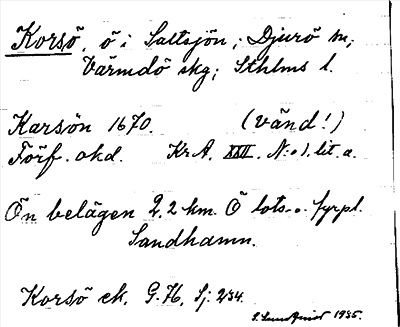 Korsö, ö i Saltsjön, Djurö sn;
Värmdö skg; Sthlms l.
Karsön 1670. (vänd!)
Förf. okd. KrA. XXII. N:o 1. lit. a.
Ön belägen 2,2 km. Ö lots- o. fyrpl.
Sandhamn.
Korsö ek. G. 76, Sj. 234.
1935.